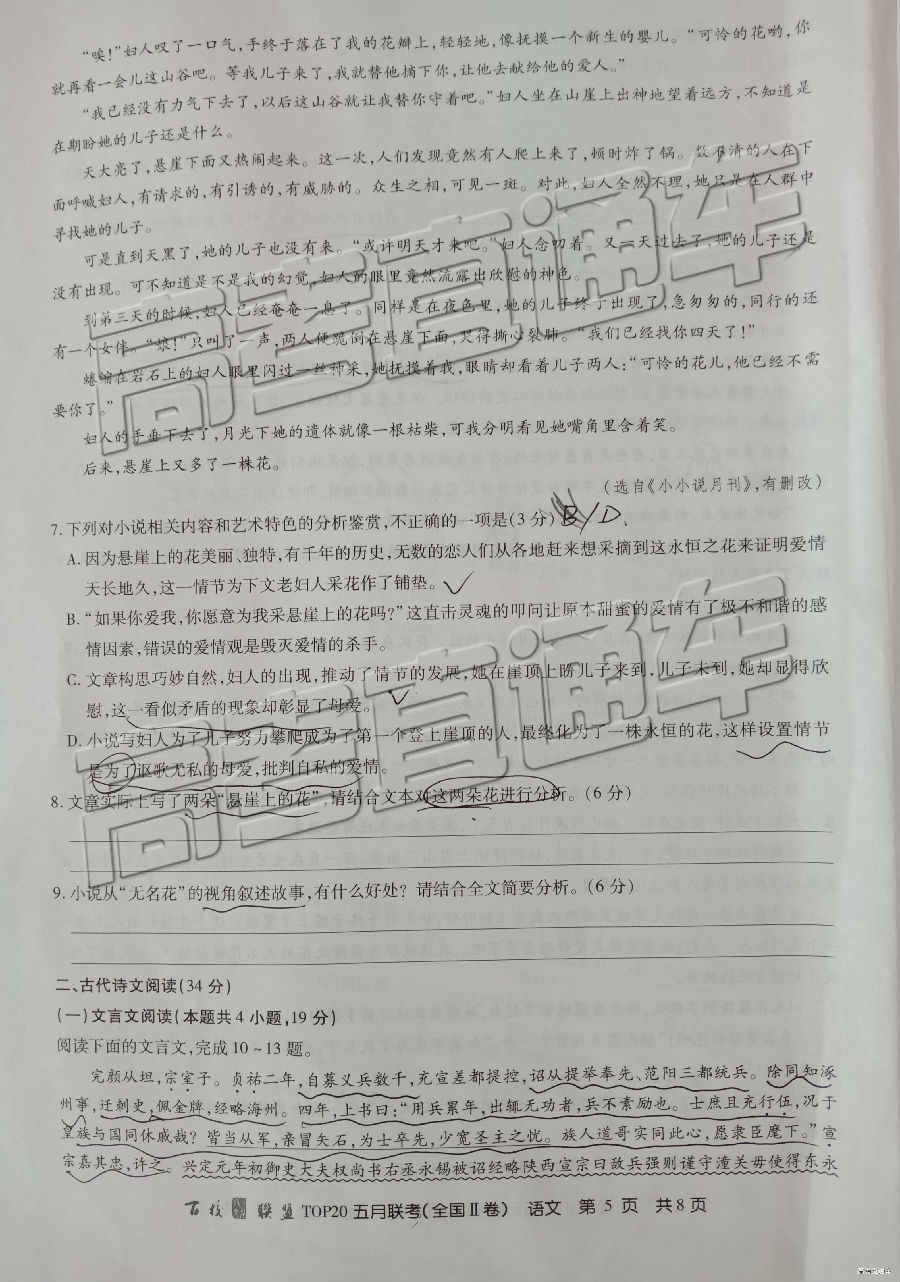 “唉！”妇人叹了一口气，手终于落在了我的花瓣上，轻轻地，像抚摸一个新生的婴儿。“可怜的花哟，你
就再看一会儿这山谷吧。等我儿子来了，我就替他摘下你，让他去献给他的爱人。”
“我已经没有力气下去了，以后这山谷就让我替你守着吧。”妇人坐在山崖上出神地望着远方，不知道是
在期盼她的儿子还是什么。
天大亮了，悬崖下面又热闹起来。这一次，人们发现竟然有人爬上来了，顿时炸了锅。数不清的人在下
面呼喊妇人，有请求的，有引诱的，有威胁的。众生之相，可见一斑。对此，妇人全然不理，她只是在人群中
寻找她的儿子。
可是直到天黑了，她的儿子也没有来。“或许明天才来吧。”妇人念叨着。又一天过去了，她的儿子还是
没有出现。可不知道是不是我的幻觉，妇人的眼里竟然流露出欣慰的神色。
到第三天的时候，妇人已经奄奄一息了。同样是在夜色里，她的儿子终于出现了，急匆匆的，同行的还
有一个女伴。“娘！”只叫了一声，两人便跪倒在悬崖下面，哭得撕心裂肺。“我们已经找你四天了！”
蜷缩在岩石上的妇人眼里闪过一丝神采，她抚摸着我，眼睛却看着儿子两人：“可怜的花儿，他已经不需
要你了。”
妇人的手垂下去了，月光下她的遗体就像一根枯柴，可我分明看见她嘴角里含着笑。
后来，悬崖上又多了一株花。
（选自《小小说月刊》，有删改）
7. 下列对小说相关内容和艺术特色的分析鉴赏，不正确的一项是（3 分） B/D
A. 因为悬崖上的花美丽、独特，有千年的历史，无数的恋人们从各地赶来想采摘到这永恒之花来证明爱情
天长地久，这一情节为下文老妇人采花作了铺垫。
B. “如果你爱我，你愿意为我采悬崖上的花吗？”这直击灵魂的叩问让原本甜蜜的爱情有了极不和谐的感
情因素，错误的爱情观是毁灭爱情的杀手。
C. 文章构思巧妙自然，妇人的出现，推动了情节的发展，她在崖顶上盼儿子来到，儿子未到，她却显得欣
慰，这一看似矛盾的现象却彰显了母爱。
D. 小说写妇人为了儿子努力攀爬成为了第一个登上崖顶的人，最终化为了一株永恒的花，这样设置情节
是为了讴歌无私的母爱，批判自私的爱情。
8. 文章实际上写了两朵“悬崖上的花”，请结合文本对这两朵花进行分析。（6 分）
9. 小说从“无名花”的视角叙述故事，有什么好处？请结合全文简要分析。（6 分）
二、古代诗文阅读（34 分）
（一）文言文阅读（本题共 4 小题，19 分）
阅读下面的文言文，完成 10～13 题。
完颜从坦，宗室子。贞祐二年，自募义兵数千，充宣差都提控，诏从提举奉先、范阳三都统兵。除同知涿
州事，迁刺史，佩金牌，经略海州。四年，上书曰：“用兵累年，出辄无功者，兵不素励也。士庶且充行伍，况于
皇族与国同休戚哉？皆当从军，亲冒矢石，为士卒先，少宽圣主之忧。族人道哥实同此心，愿隶臣麾下。”宣
宗嘉其忠，许之。兴定元年初御史大夫权尚书右丞永锡被诏经略陕西宣宗曰敌兵强则谨守潼关毋使得东永
百校联盟 TOP20 五月联考（全国Ⅱ卷） 语文 第 5 页 共 8 页